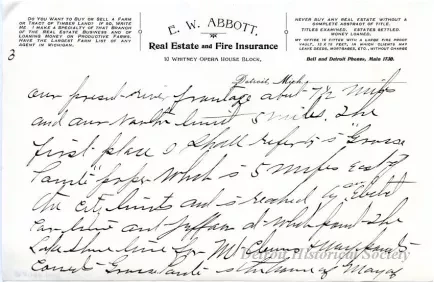 DO YOU WANT TO BUY OR SELL A FARM
OR TRACT OF TIMBER LAND? IF SO, WRITE
ME. I MAKE A SPECIALTY OF THAT BRANCH
OF THE REAL ESTATE BUSINESS AND OF
LOANING MONEY ON PRODUCTIVE FARMS.
HAVE THE LARGEST FARM LIST OF ANY
AGENT IN MICHIGAN.
E. W. ABBOTT,
Real Estate and Fire Insurance
10 WHITNEY OPERA HOUSE BLOCK,
NEVER BUY ANY REAL ESTATE WITHOUT A
COMPLETE ABSTRACT OF TITLE.
TITLES EXAMINED. ESTATES SETTLED.
MONEY LOANED.
MY OFFICE IS FITTED WITH A LARGE FIRE PROOF
VAULT, IN WHICH CLIENTS MAY
LEAVE DEEDS, MORTGAGES, ETC., WITHOUT CHARGE
Bell and Detroit Phones, Main 1738.
3
Detroit, Mich.,
our present river frontage about 7½ miles
and our north limit 5 miles. The
first place I shall refer to is "Grosse
Pointe" proper which is 5 miles east of
the city limits and is reached by
car line and Jefferson the
Lake Shore line for Mt Clemens
Grosse Pointe is the home of many of
Detroit Historical Society